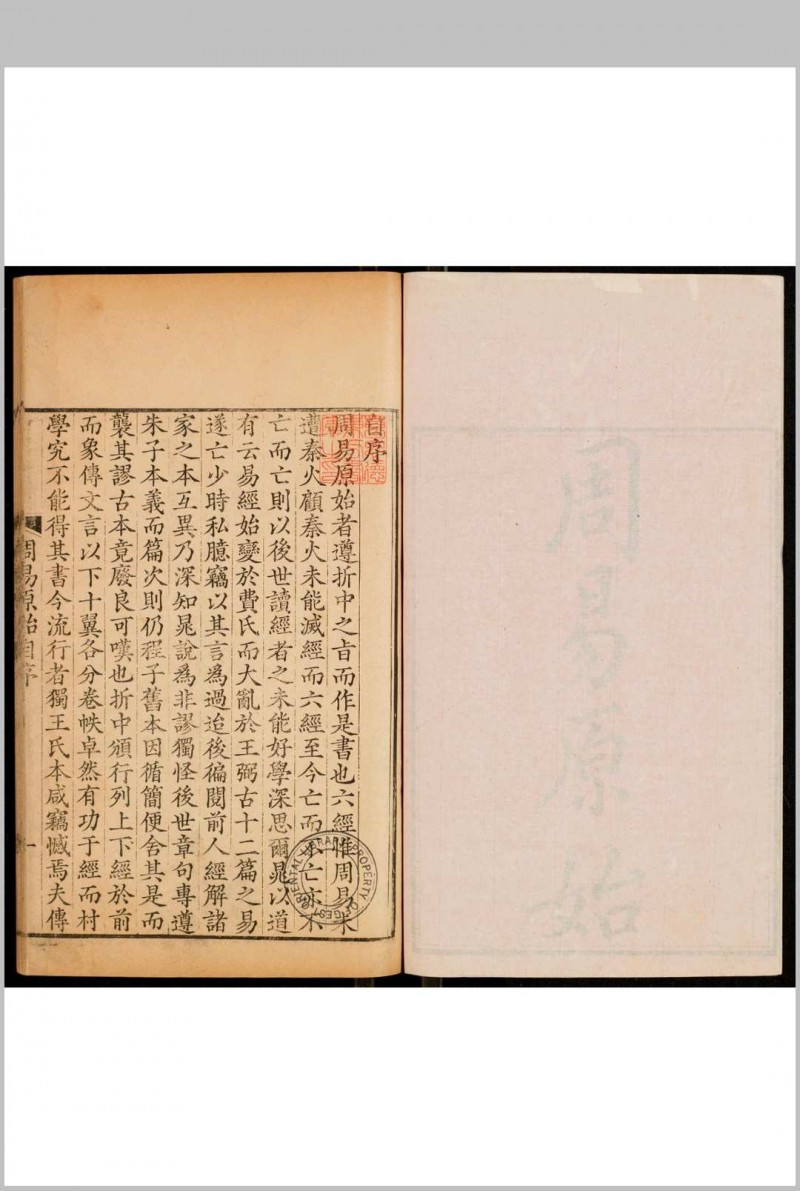 周易原始
自序
周易原始者遵折中之㫖而作是書也六經惟周易未
遭秦火顧秦火未能滅經而六經至今亡而不亡亦不
亡而亡則以後世讀經者之未能好學深思爾晁以道
有云易經始變於費氏而大亂於王弼古十二篇之易
遂亡少時私臆竊以其言爲過迨後徧閱前人經解諸
家之本互異乃深知晁說爲非謬獨怪後世章句專遵
朱子本義而篇次則仍程子舊本因循簡便舍其是而
襲其謬古本竟廢良可嘆也折中頒行列上下經於前
而彖傳文言以下十翼各分卷帙卓然有功于經而村
學究不能得其書今流行者獨王氏本咸竊憾焉夫傳
周易原始自序
一
PROPERTY